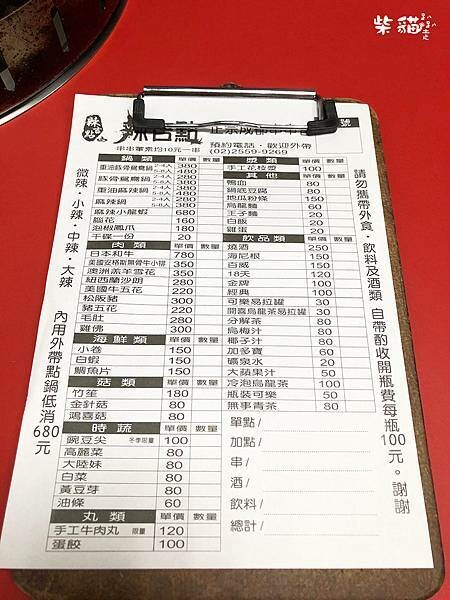 柴貓
辣
點
號
辣百點
串串葷素均10元一串
預約電話·歡迎外帶
(02)2559-9269
微辣·小辣·中辣·大辣
內用外帶點鍋低消680元
鍋類 單價 數量
重油麻辣鴛鴦鍋 2-4人 380
5-8人 480
豚骨鴛鴦鍋 2-4人 280
5-8人 380
重油麻辣鍋 2-4人 380
麻辣鍋 2-4人 280
5-8人 380
麻辣小龍蝦 680
腦花 160
泡椒鳳爪 180
干碟一份 20
肉類 單價 數量
日本和牛 780
美國安格斯無骨牛小排 350
澳洲羔羊雪花 350
紐西蘭沙朗 280
美國牛五花 220
松阪豬 300
豬五花 220
毛肚 280
雞佛 300
海鮮類 單價 數量
小卷 150
白蝦 150
鯛魚片 150
菇類 單價 數量
竹笙 180
金針菇 80
鴻喜菇 80
時蔬 單價 數量
豌豆尖 冬季限量 100
高麗菜 80
大陸妹 80
白菜 80
黃豆芽 80
油條 60
丸類 單價 數量
手工牛肉丸 限量 120
蛋餃 100
漿類 單價 數量
手工花枝漿 100
其他 單價 數量
鴨血 80
鍋底豆腐 80
地瓜粉條 150
烏龍麵 60
王子麵 20
白飯 20
雞蛋 20
飲品類 單價 數量
燒酒 250
海尼根 150
百威 150
18天 120
金牌 100
經典 100
可樂易拉罐 30
開喜烏龍茶易拉罐 30
分解茶 80
烏梅汁 80
椰子汁 80
加多寶 60
礦泉水 20
大蘋果汁 50
冷泡烏龍茶 100
瓶裝可樂 50
無事青茶 80
單點/
加點/
串/
酒/
飲料/
總計/
請勿攜帶外食、飲料及酒類 自帶酌收開瓶費每瓶100元。謝謝